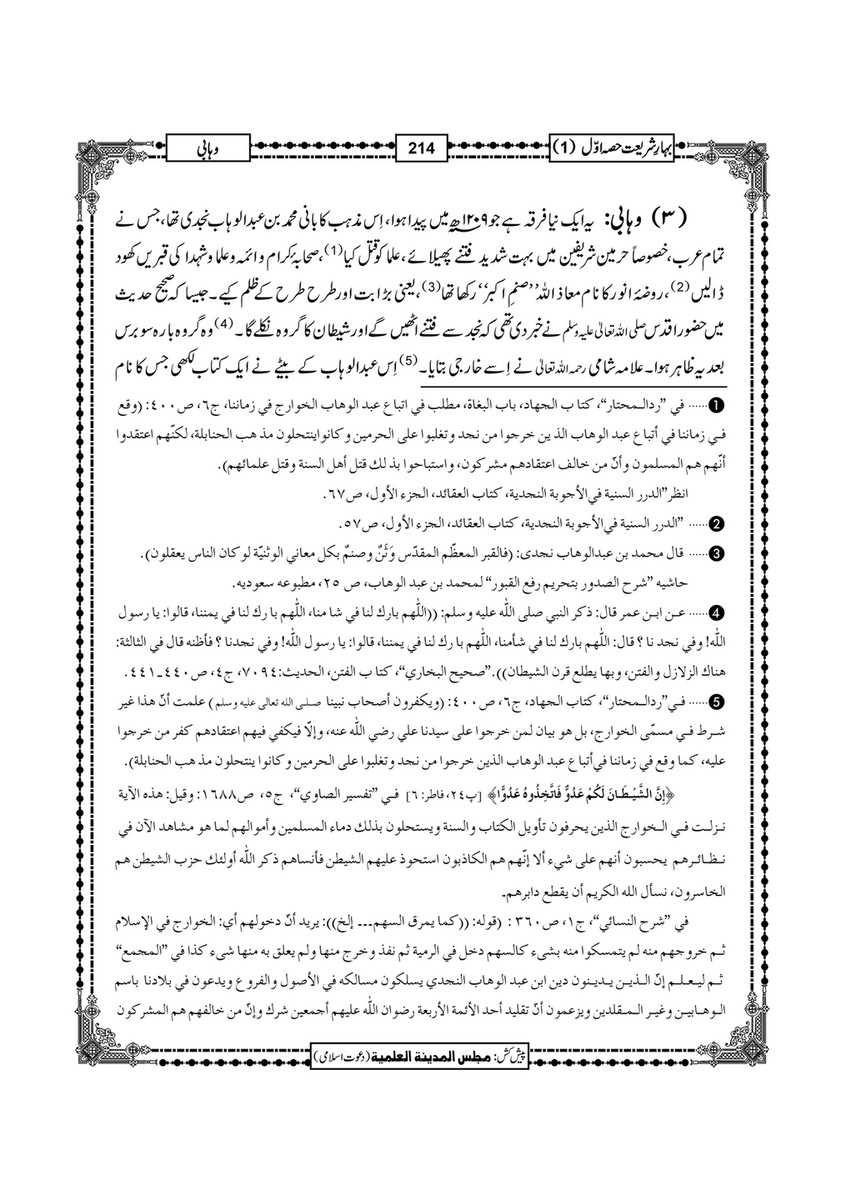 بہارِشریعت حصہ اوّل (1)
214
وہابی
(۳) وہابی: یہ ایک نیا فرقہ ہے جو ۱۲۰۹ھ میں پیدا ہوا، اِس مذہب کا بانی محمد بن عبدالوہاب نجدی تھا، جس نے
تمام عرب، خصوصاً حرمین شریفین میں بہت شدید فتنے پھیلائے، علما کو قتل کیا(1)، صحابۂ کرام و ائمہ و علما و شہدا کی قبریں کھود
ڈالیں(2)، روضۂ انور کا نام معاذ اللہ ”صنمِ اکبر“ رکھا تھا(3)، یعنی بڑا بت اور طرح طرح کے ظلم کیے۔ جیسا کہ صحیح حدیث
میں حضور اقدس صلی اللہ تعالیٰ علیہ وسلم نے خبر دی تھی کہ نجد سے فتنے اٹھیں گے اور شیطان کا گروہ نکلے گا۔(4) وہ گروہ بارہ سو برس
بعد یہ ظاہر ہوا۔ علامہ شامی رحمہ اللہ تعالیٰ نے اِسے خارجی بتایا۔(5) اِس عبدالوہاب کے بیٹے نے ایک کتاب لکھی جس کا نام
❶...... في ”ردالـمحتار“، كتاب الجهاد، باب البغاة، مطلب في اتباع عبد الوهاب الخوارج في زماننا، ج٦، ص٤٠٠: (وقع
فـي زماننا في أتباع عبد الوهاب الذين خرجوا من نجد وتغلبوا على الحرمين وكانوا ينتحلون مذهب الحنابلة، لكنّهم اعتقدوا
أنّهم هم المسلمون وأنّ من خالف اعتقادهم مشركون، واستباحوا بذلك قتل أهل السنة وقتل علمائهم).
انظر ”الدرر السنية في الأجوبة النجدية، كتاب العقائد، الجزء الأول، ص٦٧.
❷...... ”الدرر السنية في الأجوبة النجدية، كتاب العقائد، الجزء الأول، ص٥٧.
❸...... قال محمد بن عبدالوهاب نجدى: (فالقبر المعظّم المقدّس وَثَنٌ وصنمٌ بكل معاني الوثنيّة لو كان الناس يعقلون).
حاشيه ”شرح الصدور بتحريم رفع القبور“ لمحمد بن عبد الوهاب، ص ٢٥، مطبوعه سعوديه.
❹...... عـن ابـن عمر قال: ذكر النبي صلى الله عليه وسلم: ((اللّهم بارك لنا في شامنا، اللّهم بارك لنا في يمننا، قالوا: يا رسول
الله! وفي نجدنا؟ قال: اللّهم بارك لنا في شأمنا، اللّهم بارك لنا في يمننا، قالوا: يا رسول الله! وفي نجدنا؟ فأظنه قال في الثالثة:
هناك الزلازل والفتن، وبها يطلع قرن الشيطان)). ”صحيح البخاري“، كتاب الفتن، الحديث:٧٠٩٤، ج٤، ص٤٤٠ـ٤٤١.
❺...... فـي”ردالـمحتار“، كتاب الجهاد، ج٦، ص٤٠٠: (ويكفرون أصحاب نبينا صلى الله تعالى عليه وسلم) علمت أنّ هذا غير
شـرط فـي مسمّى الخوارج، بل هو بيان لمن خرجوا على سيدنا علي رضي الله عنه، وإلاّ فيكفي فيهم اعتقادهم كفر من خرجوا
عليه، كما وقع في زماننا في أتباع عبد الوهاب الذين خرجوا من نجد وتغلبوا على الحرمين وكانوا ينتحلون مذهب الحنابلة).
﴿اِنَّ الشَّيْطَانَ لَكُمْ عَدُوٌّ فَاتَّخِذُوهُ عَدُوًّا﴾ [پ٢٤، فاطر: ٦] فـي ”تفسير الصاوي“، ج٥، ص١٦٨٨: وقيل: هذه الآية
نـزلـت فـي الـخوارج الذين يحرفون تأويل الكتاب والسنة ويستحلون بذلك دماء المسلمين وأموالهم لما هو مشاهد الآن في
نـظـائـرهم يحسبون أنهم على شيء ألا إنّهم هم الكاذبون استحوذ عليهم الشيطن فأنساهم ذكر الله أولئك حزب الشيطن هم
الخاسرون، نسأل الله الكريم أن يقطع دابرهم۔
في ”شرح النسائي“، ج١، ص٣٦٠: (قوله: ((كما يمرق السهم۔۔۔ إلخ)): يريد أنّ دخولهم أي: الخوارج في الإسلام
ثـم خروجهم منه لم يتمسكوا منه بشىء كالسهم دخل في الرمية ثم نفذ وخرج منها ولم يعلق به منها شىء كذا في ”المجمع“
ثـم ليـعـلـم إنّ الـذيـن يـدينـون دين ابن عبد الوهاب النجدي يسلكون مسالكه في الأصول والفروع ويدعون في بلادنا باسم
الـوهـابيـن وغيـر الـمـقلدين ويزعمون أنّ تقليد أحد الأئمة الأربعة رضوان الله عليهم أجمعين شرك وإنّ من خالفهم هم المشركون
پیش کش: مجلس المدينة العلمية (دعوت اسلامی)